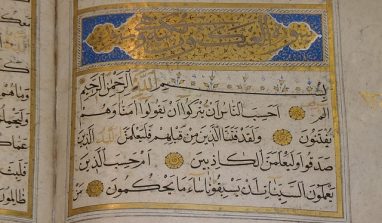 بسم الله الرحمن الرحيم
الم احسب الناس ان يتركوا ان يقولوا امنا وهم
لا يفتنون ولقد فتنا الذين من قبلهم فليعلمن الله الذين
صدقوا وليعلمن الكاذبين ام حسب الذين
يعملون السيئات ان يسبقونا ساء ما يحكمون